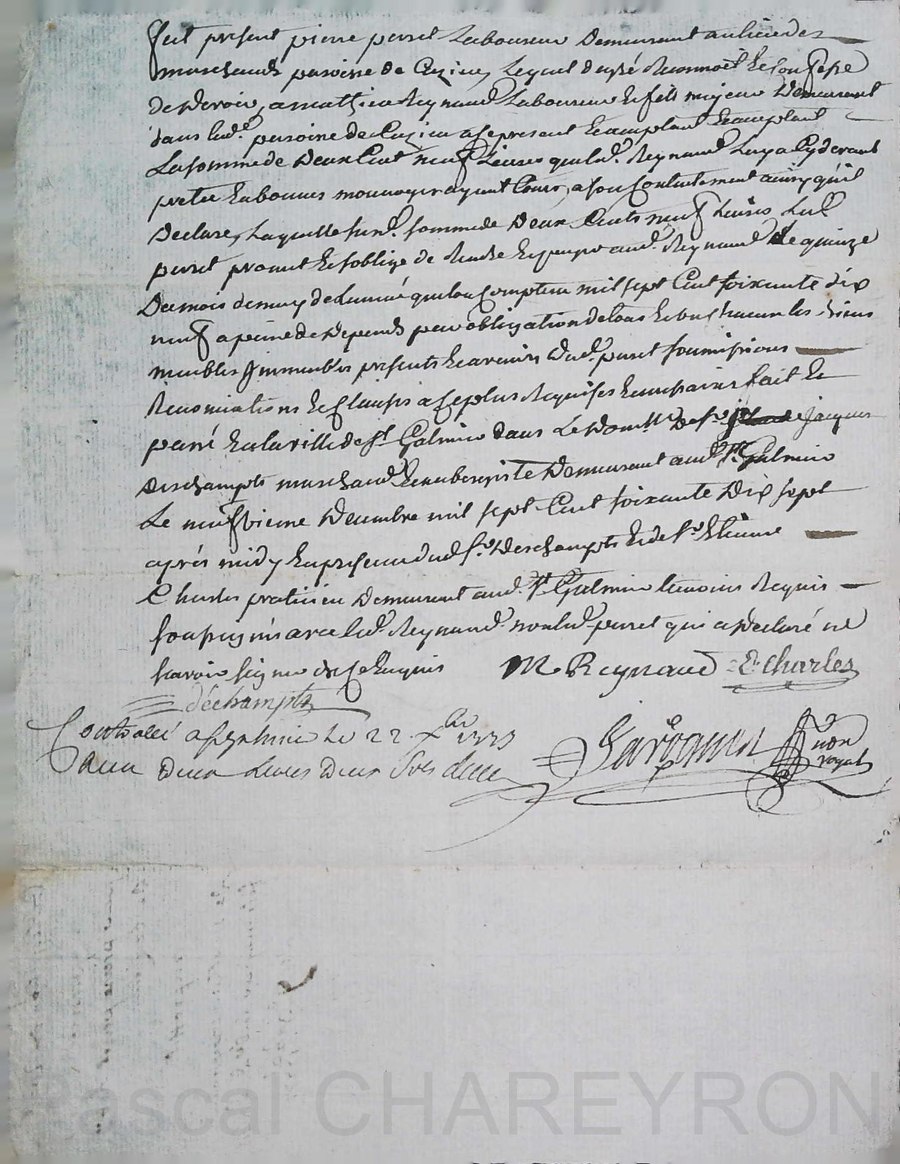 fut present pierre perret Laboureur Demeurant au lieu des
marchands paroisse de Cuzieu, Lequel de gré Reconnoit et Confesse
de devoir, a mathieu Reynaud Laboureur Demeurant
dans lad.e paroisse de Cuzieu a ce present et acceptant
La somme de Deux Cent neuf Livres que led. Reynaud Luy a Cy devant
pretée en bonnes monnoyes ayant Cours, a son Contentement ainsy qu'il
Declare, Laquelle sus.d. somme de Deux Cents neuf Livres Led.
perret promet et s'oblige de Rendre et payer aud. Reynaud Le quinze
Du mois de may de Lannée que lon Comptera mil sept Cent soixante dix
neuf a peine de Depends par obligation de tous et Chacun les biens
meubles & immeubles presents et avenirs dud. perret soumissions
Renonciations et Clauses a ce plus Requises fait et
passé en la ville de St Galmier dans Le Dom.lle De Sr Jacques
Deschampts marchand et aubergiste Demeurant aud. St Galmier
Le neufvieme Decembre mil sept Cent soixante Dix sept
après midy en presence dud. Sr Deschampts et de Sr Etienne
Charles praticien Demeurant aud. St Galmier temoins Requis
soussignés avec led. Reynaud non led. perret qui a declaré ne
savoir signer de Ce Enquis M Reynaud E Charles
déchampts
Controllé a St Galmier Le 22 Xbre 1777
Reçu Deux Livres Deux sols
not royal
Pascal CHAREYRON